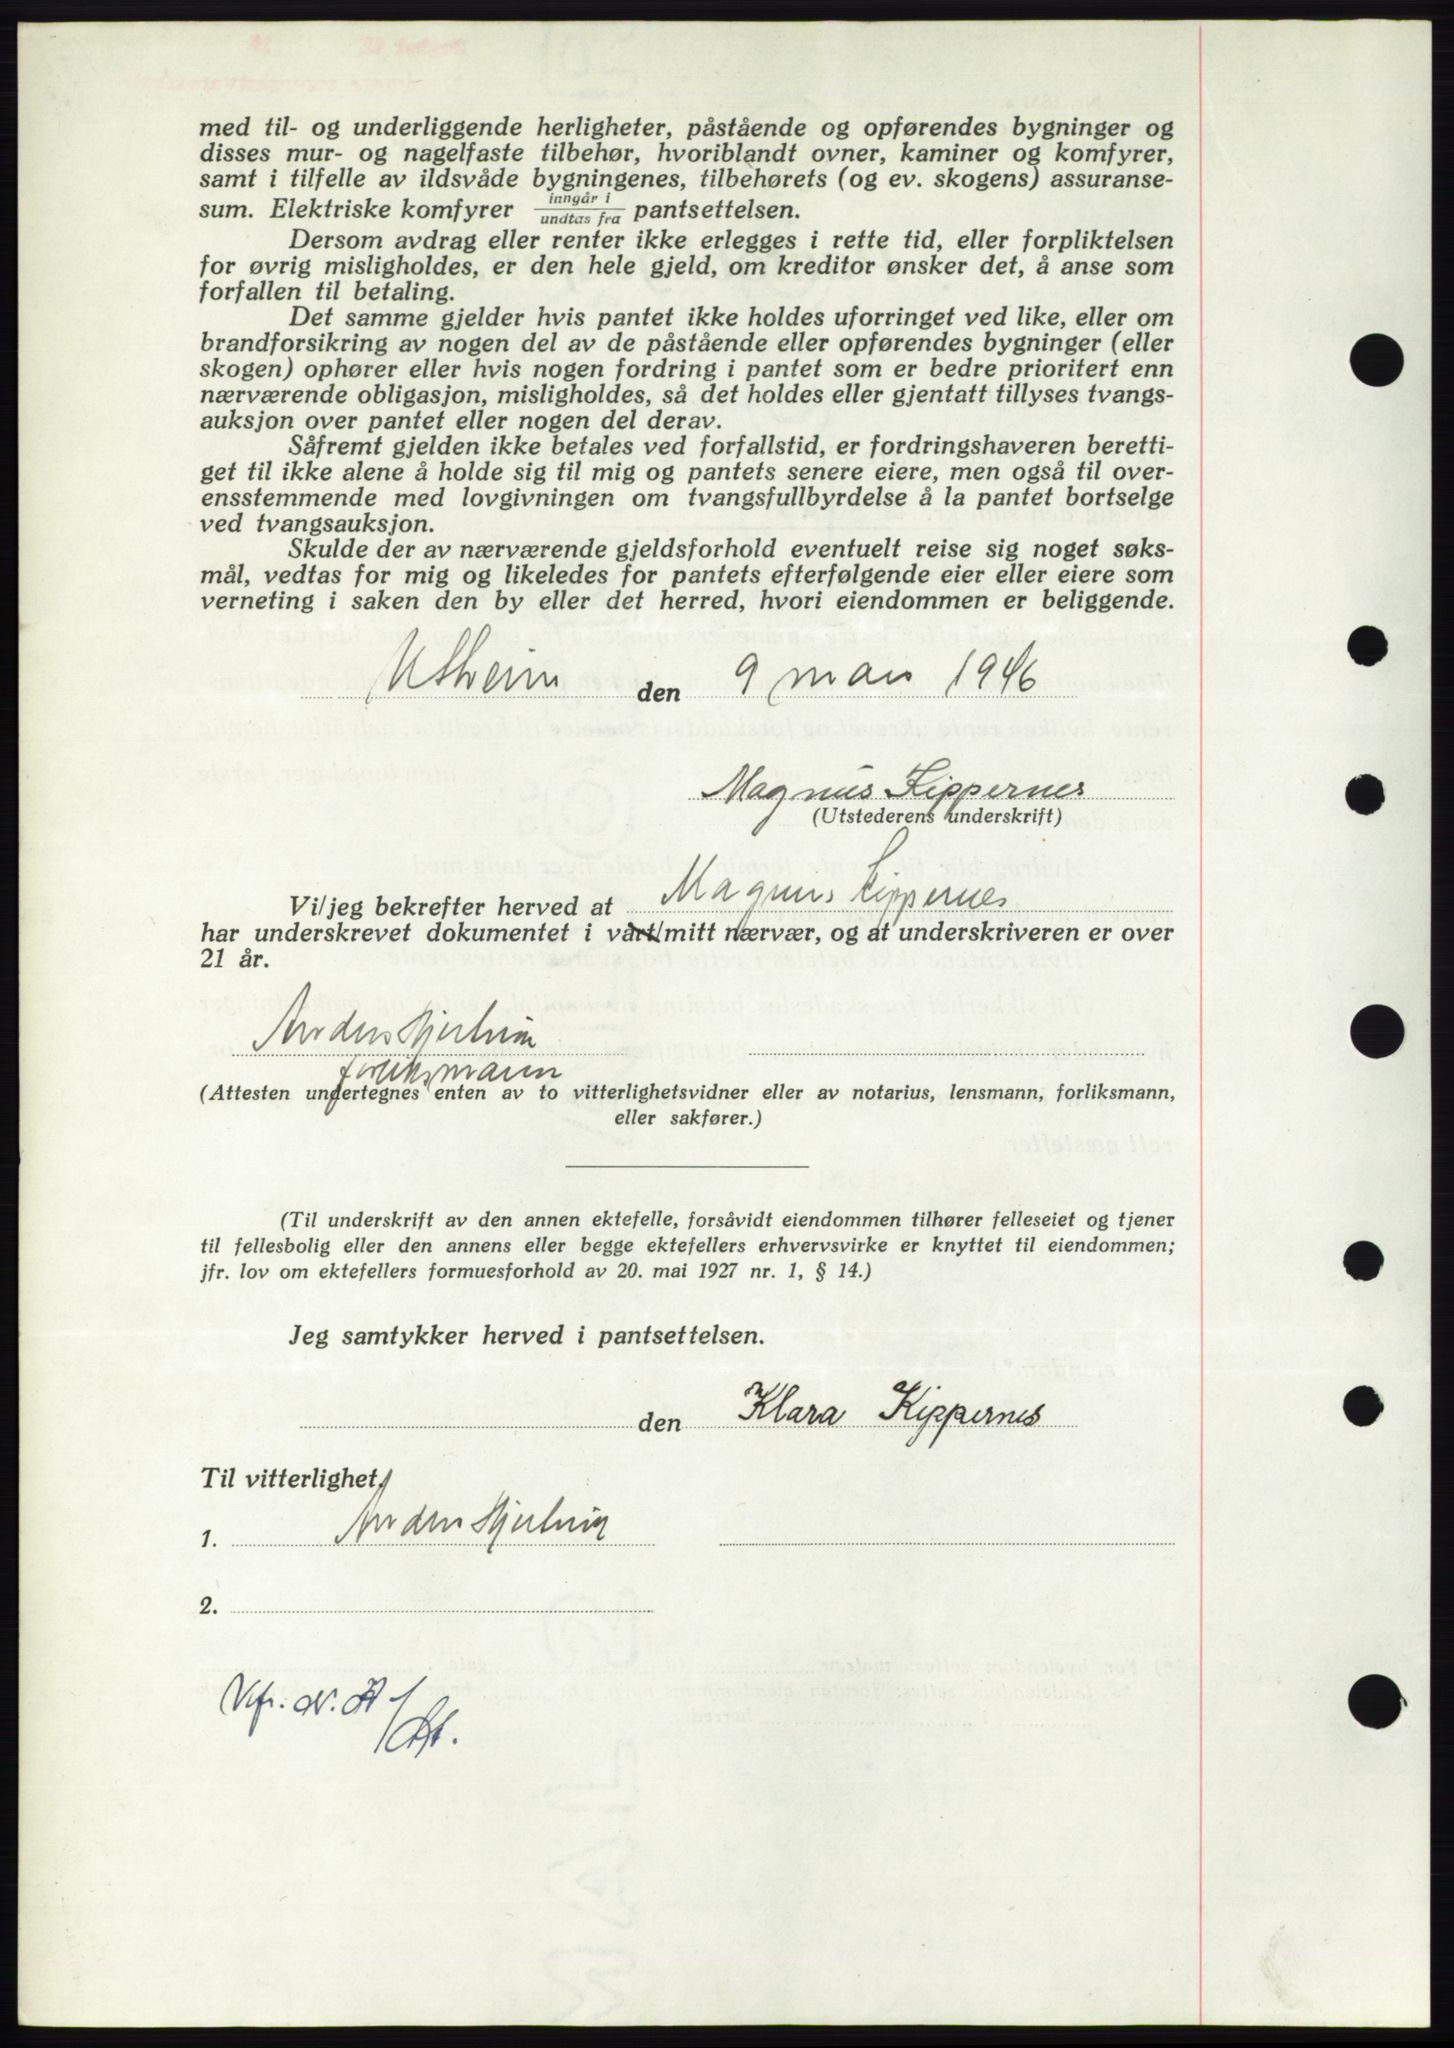 med til- og underliggende herligheter, påstående og opførendes bygninger og
disses mur- og nagelfaste tilbehør, hvoriblandt ovner, kaminer og komfyrer,
samt i tilfelle av ildsvåde bygningenes, tilbehørets (og ev. skogens) assuranse-
sum. Elektriske komfyrer inngår i / undtas fra pantsettelsen.
Dersom avdrag eller renter ikke erlegges i rette tid, eller forpliktelsen
for øvrig misligholdes, er den hele gjeld, om kreditor ønsker det, å anse som
forfallen til betaling.
Det samme gjelder hvis pantet ikke holdes uforringet ved like, eller om
brandforsikring av nogen del av de påstående eller opførendes bygninger (eller
skogen) ophører eller hvis nogen fordring i pantet som er bedre prioritert enn
nærværende obligasjon, misligholdes, så det holdes eller gjentatt tillyses tvangs-
auksjon over pantet eller nogen del derav.
Såfremt gjelden ikke betales ved forfallstid, er fordringshaveren beretti-
get til ikke alene å holde sig til mig og pantets senere eiere, men også til over-
ensstemmende med lovgivningen om tvangsfullbyrdelse å la pantet bortselge
ved tvangsauksjon.
Skulde der av nærværende gjeldsforhold eventuelt reise sig noget søks-
mål, vedtas for mig og likeledes for pantets efterfølgende eier eller eiere som
verneting i saken den by eller det herred, hvori eiendommen er beliggende.
Utheim den 9 mars 1946
Magnus Kippernes
(Utstederens underskrift)
Vi/jeg bekrefter herved at Magnus Kippernes
har underskrevet dokumentet i vårt/mitt nærvær, og at underskriveren er over
21 år.
Anders Hjelvik
forliksmann
(Attesten undertegnes enten av to vitterlighetsvidner eller av notarius, lensmann, forliksmann,
eller sakfører.)
(Til underskrift av den annen ektefelle, forsåvidt eiendommen tilhører felleseiet og tjener
til fellesbolig eller den annens eller begge ektefellers erhvervsvirke er knyttet til eiendommen;
jfr. lov om ektefellers formuesforhold av 20. mai 1927 nr. 1, § 14.)
Jeg samtykker herved i pantsettelsen.
den Klara Kippernes
Til vitterlighet
1. Anders Hjelvik
2.